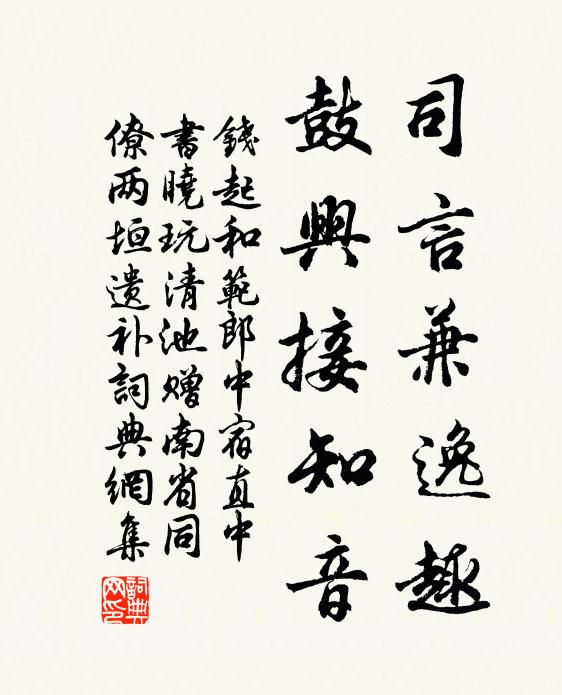 司言兼逸趣
鼓興接知音
錢起和範郎中宿直中
書曉玩清池赠南省同
僚两垣遗补詞典網集
詞典網印